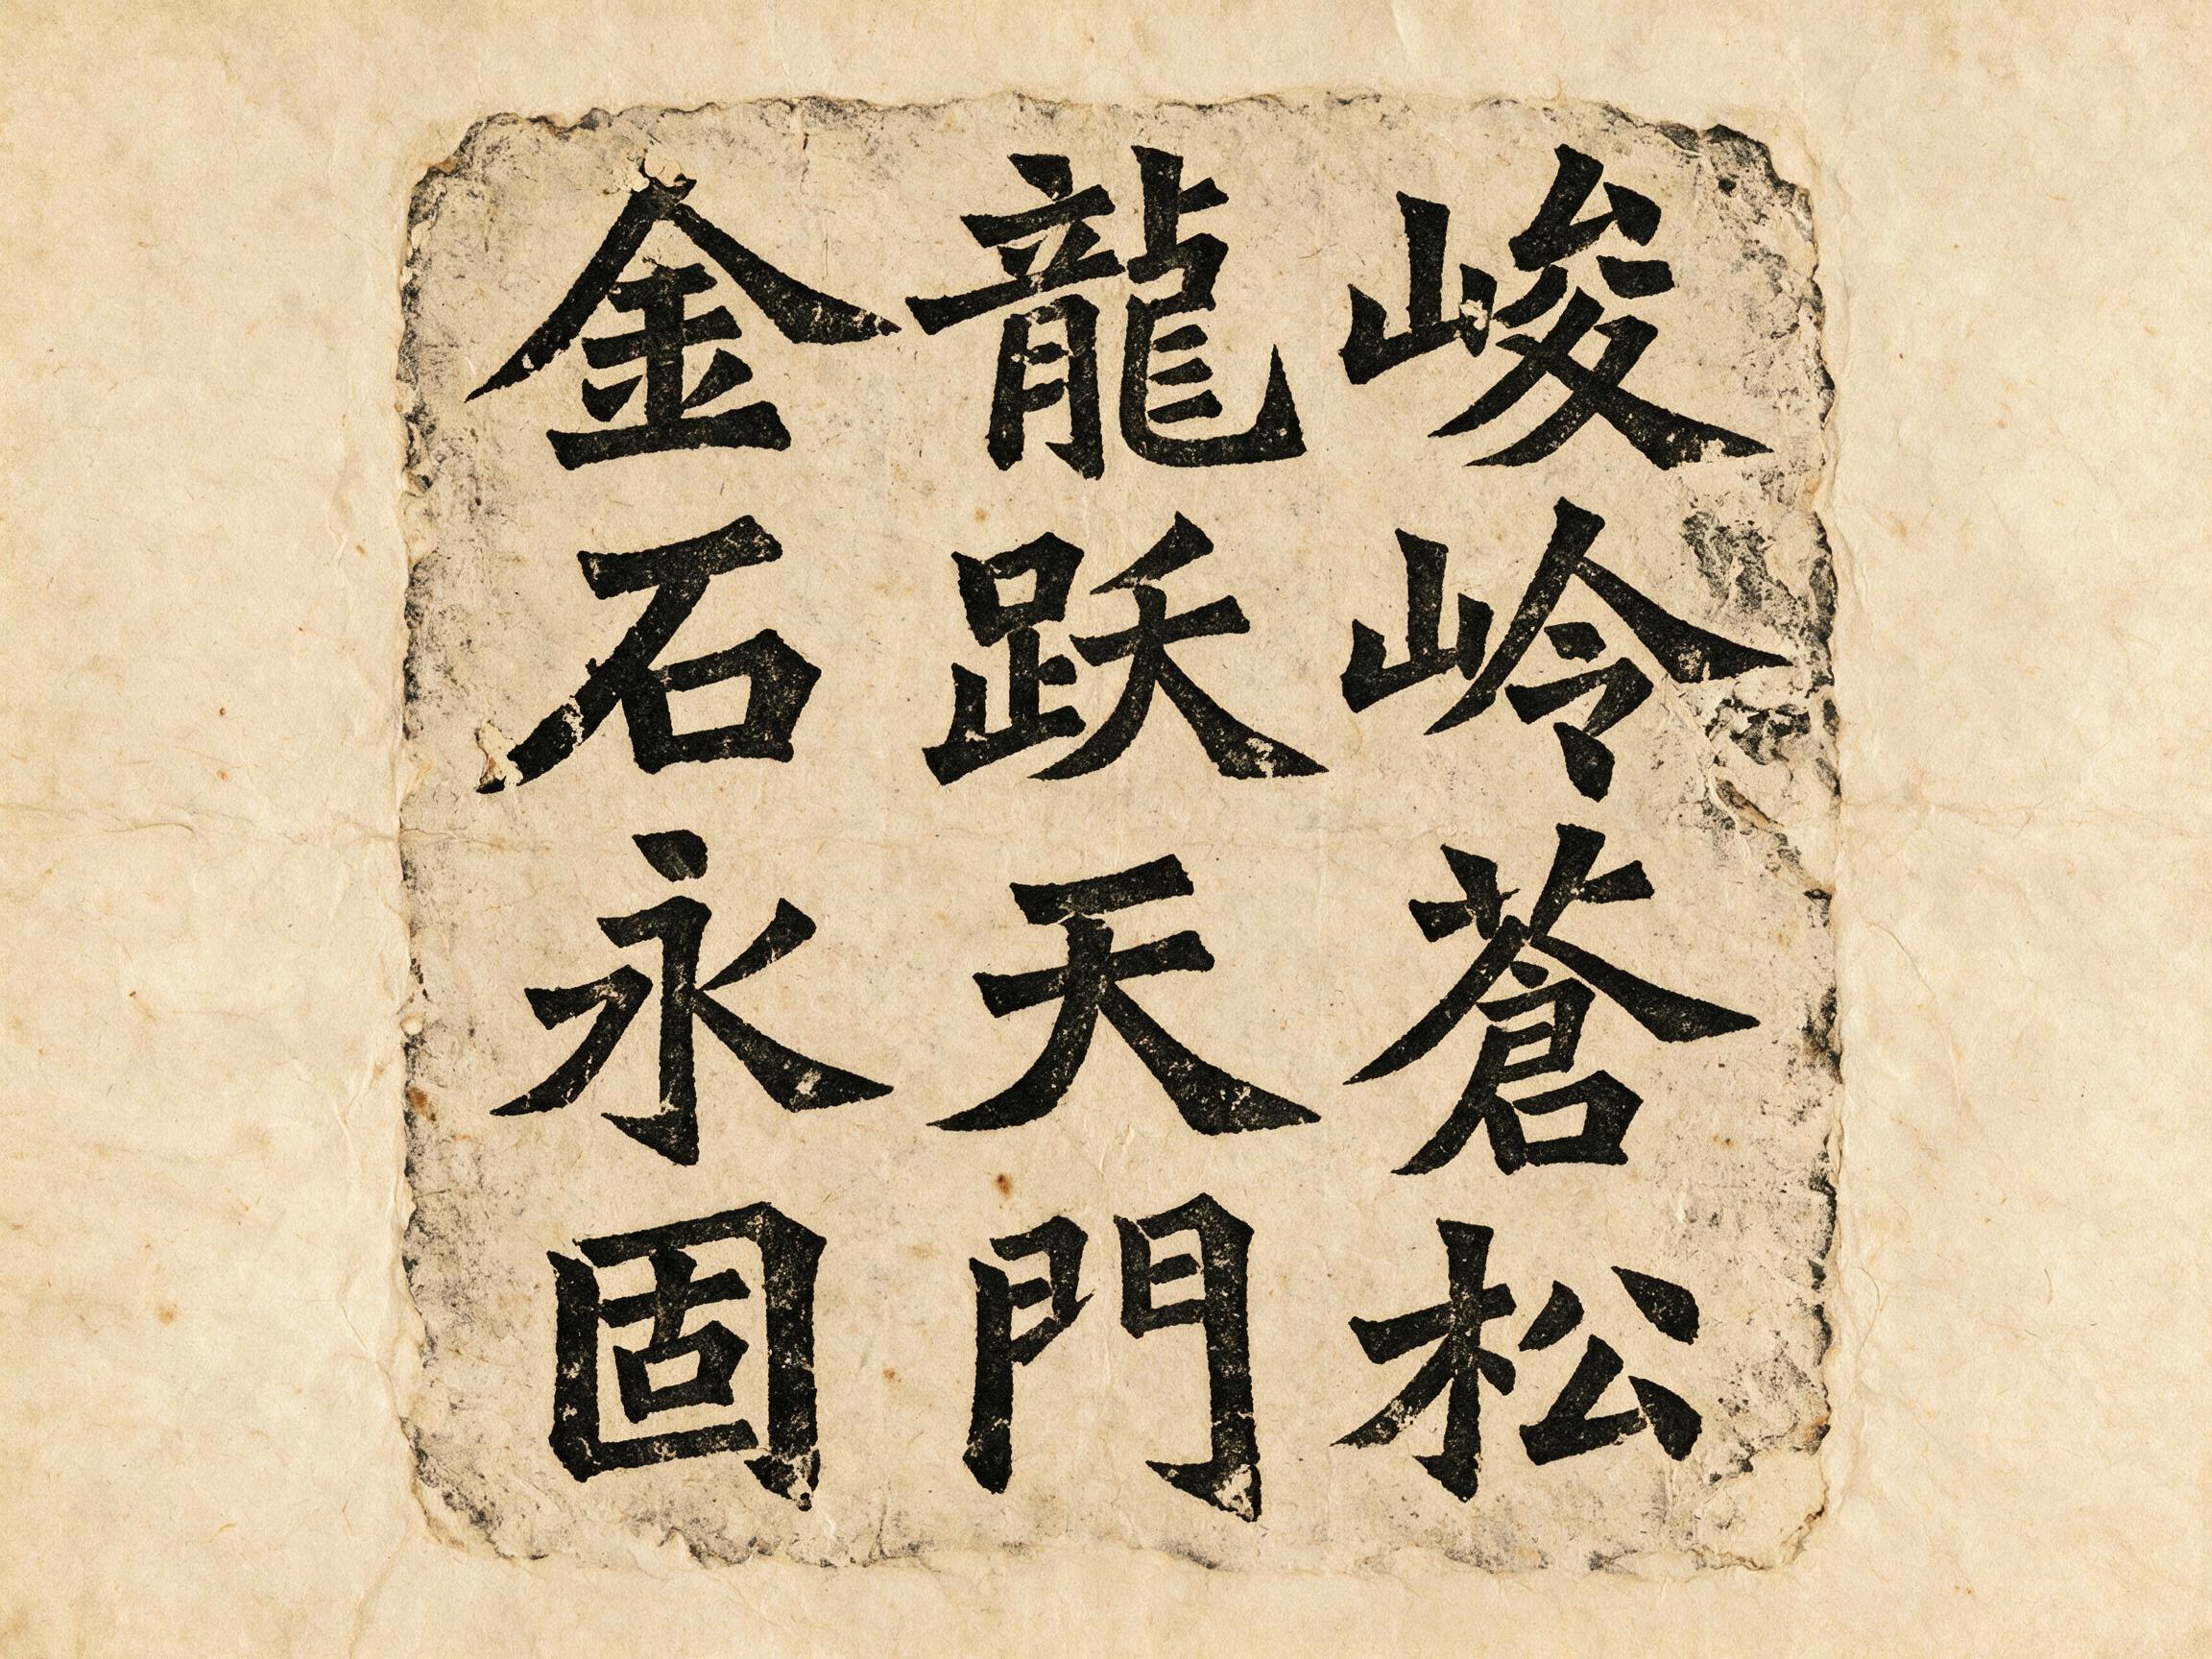 峻岭蒼松
龍跃天門
金石永固